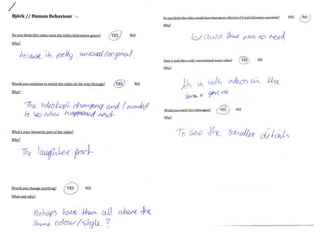 Björk // Human Behaviour
Do you think this video suits the indie/alternative genre? YES NO
Why?
because its pretty unusual/original.
Would you continue to watch the video all the way through? YES NO
Why?
The video kept changing and I wanted
to see what happened next
What's your favourite part of the video?
The laughter part
Would you change anything? YES NO
What and why?
Perhaps have them all where the
same colour/style?
Do you think the video would have been more effective if it had followed a narrative? YES NO
Why?
because there was no need
Does it look like a real/conventional music video? YES NO
Why?
It's in with videos in the
same genre
Would you watch the video again? YES NO
Why?
To see the smaller details